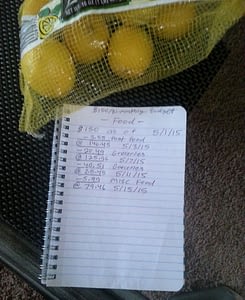 $150/monthly Budget
- Food -
$150 as of 5/1/15
- 3.55 Fast Food
@ 146.45 5/3/15
- 20.49 Groceries
@ 125.96 5/7/15
- 40.51 Groceries
@ 85.45 5/11/15
- 5.99 Misc Food
@ 79.46 5/15/15